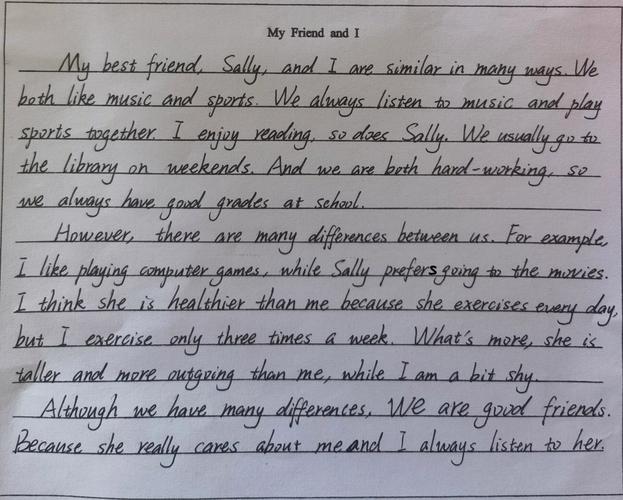 My Friend and I
My best friend, Sally, and I are similar in many ways. We
both like music and sports. We always listen to music and play
sports together. I enjoy reading, so does Sally. We usually go to
the library on weekends. And we are both hard-working, so
we always have good grades at school.
However, there are many differences between us. For example,
I like playing computer games, while Sally prefers going to the movies.
I think she is healthier than me because she exercises every day,
but I exercise only three times a week. What's more, she is
taller and more outgoing than me, while I am a bit shy.
Although we have many differences, We are good friends.
Because she really cares about me and I always listen to her.